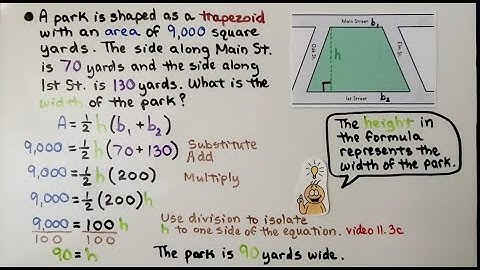 • A park is shaped as a trapezoid
with an area of 9,000 square
yards. The side along Main St.
is 70 yards and the side along
1st St. is 130 yards. What is the
width of the park?
A = 1/2 h (b₁ + b₂)
9,000 = 1/2 h (70 + 130) Substitute
Add
9,000 = 1/2 h (200) Multiply
9,000 = 1/2 (200) h
9,000 = 100 h
100 100
Use division to isolate
h to one side of the equation. video 11.3c
90 = h The park is 90 yards wide.
Main Street b₁
h
1st Street b₂
The height in
the formula
represents the
width of the park.